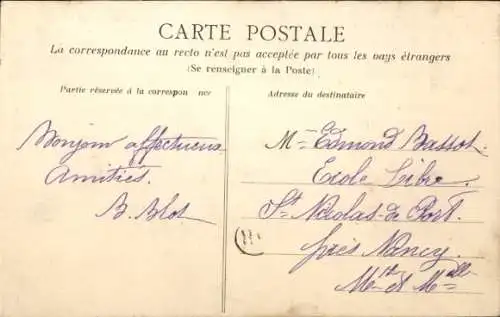 CARTE POSTALE
La correspondance au recto n'est pas acceptée par tous les pays étrangers
(Se renseigner à la Poste)
Partie réservée à la correspon nce
Adresse du destinataire
Bonjour affectueux
Amitiés.
B. Blot
Mr Edmond Bassot.
Ecole Libre.
St Nicolas-de Port.
près Nancy.
Mthe et Mselle